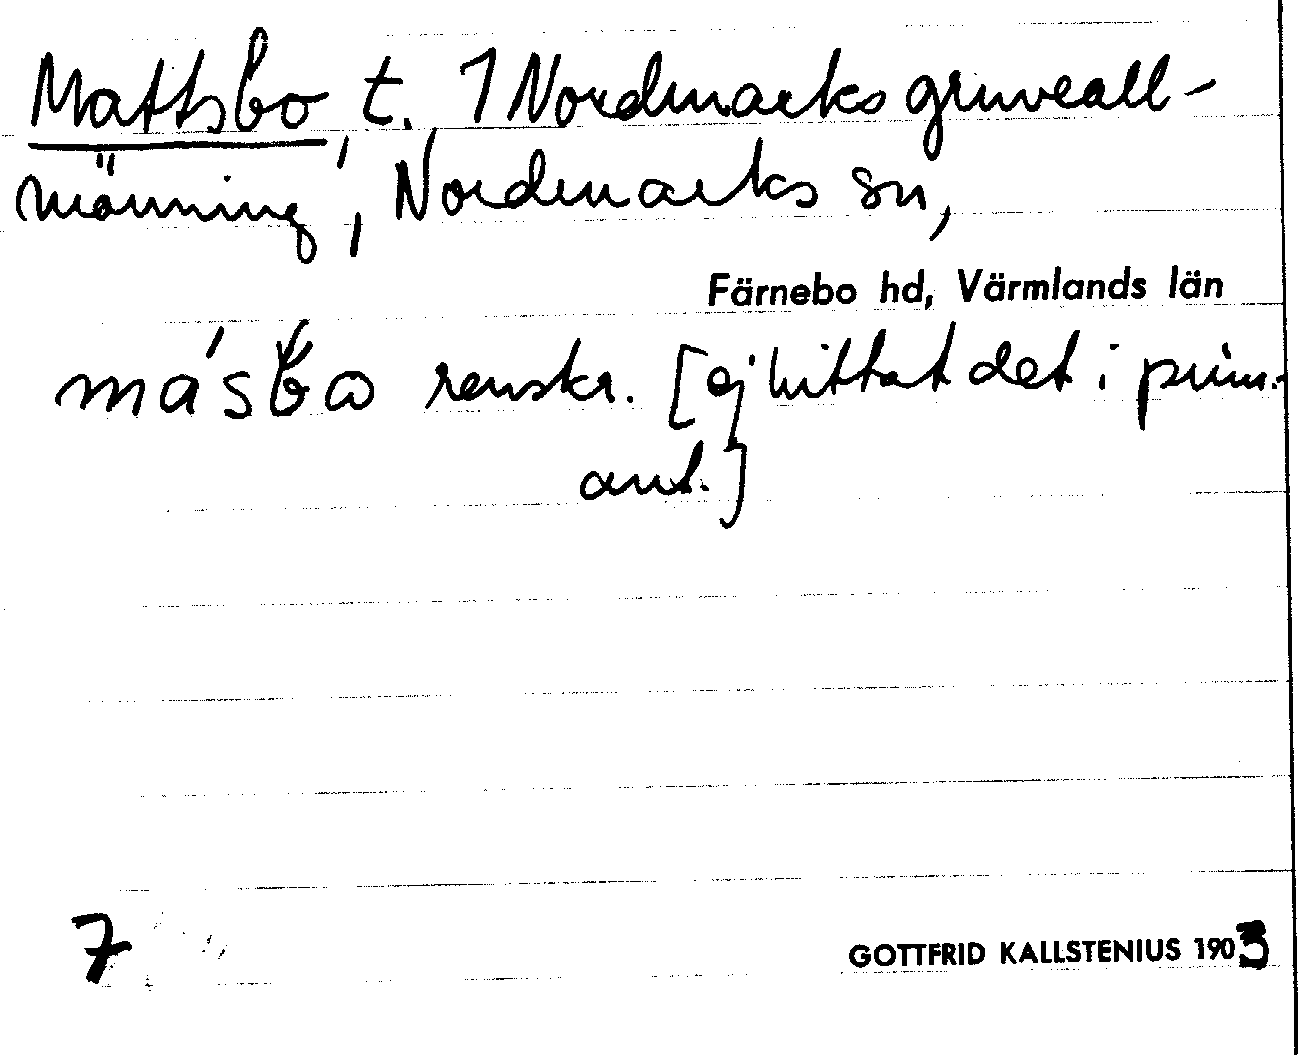 Mattsbo, t. 1 Nordmarks gruveall-
männing, Nordmarks sn,
Färnebo hd, Värmlands län
ma ́sbω renskr. [ej hittat det i prim.
ant.]
7
GOTTFRID KALLSTENIUS 1903